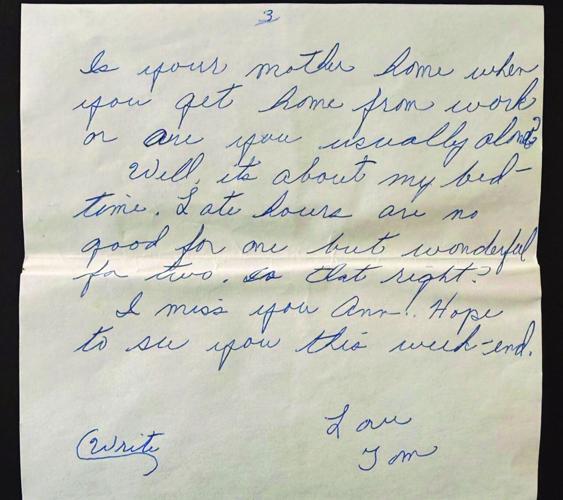 3
Is your mother home when
you get home from work
or are you usually alone?
Well, its about my bed-
time. Late hours are no
good for one but wonderful
for two. is that right?
I miss you Ann!. Hope
to see you this week-end.
Love
(Write
Tom